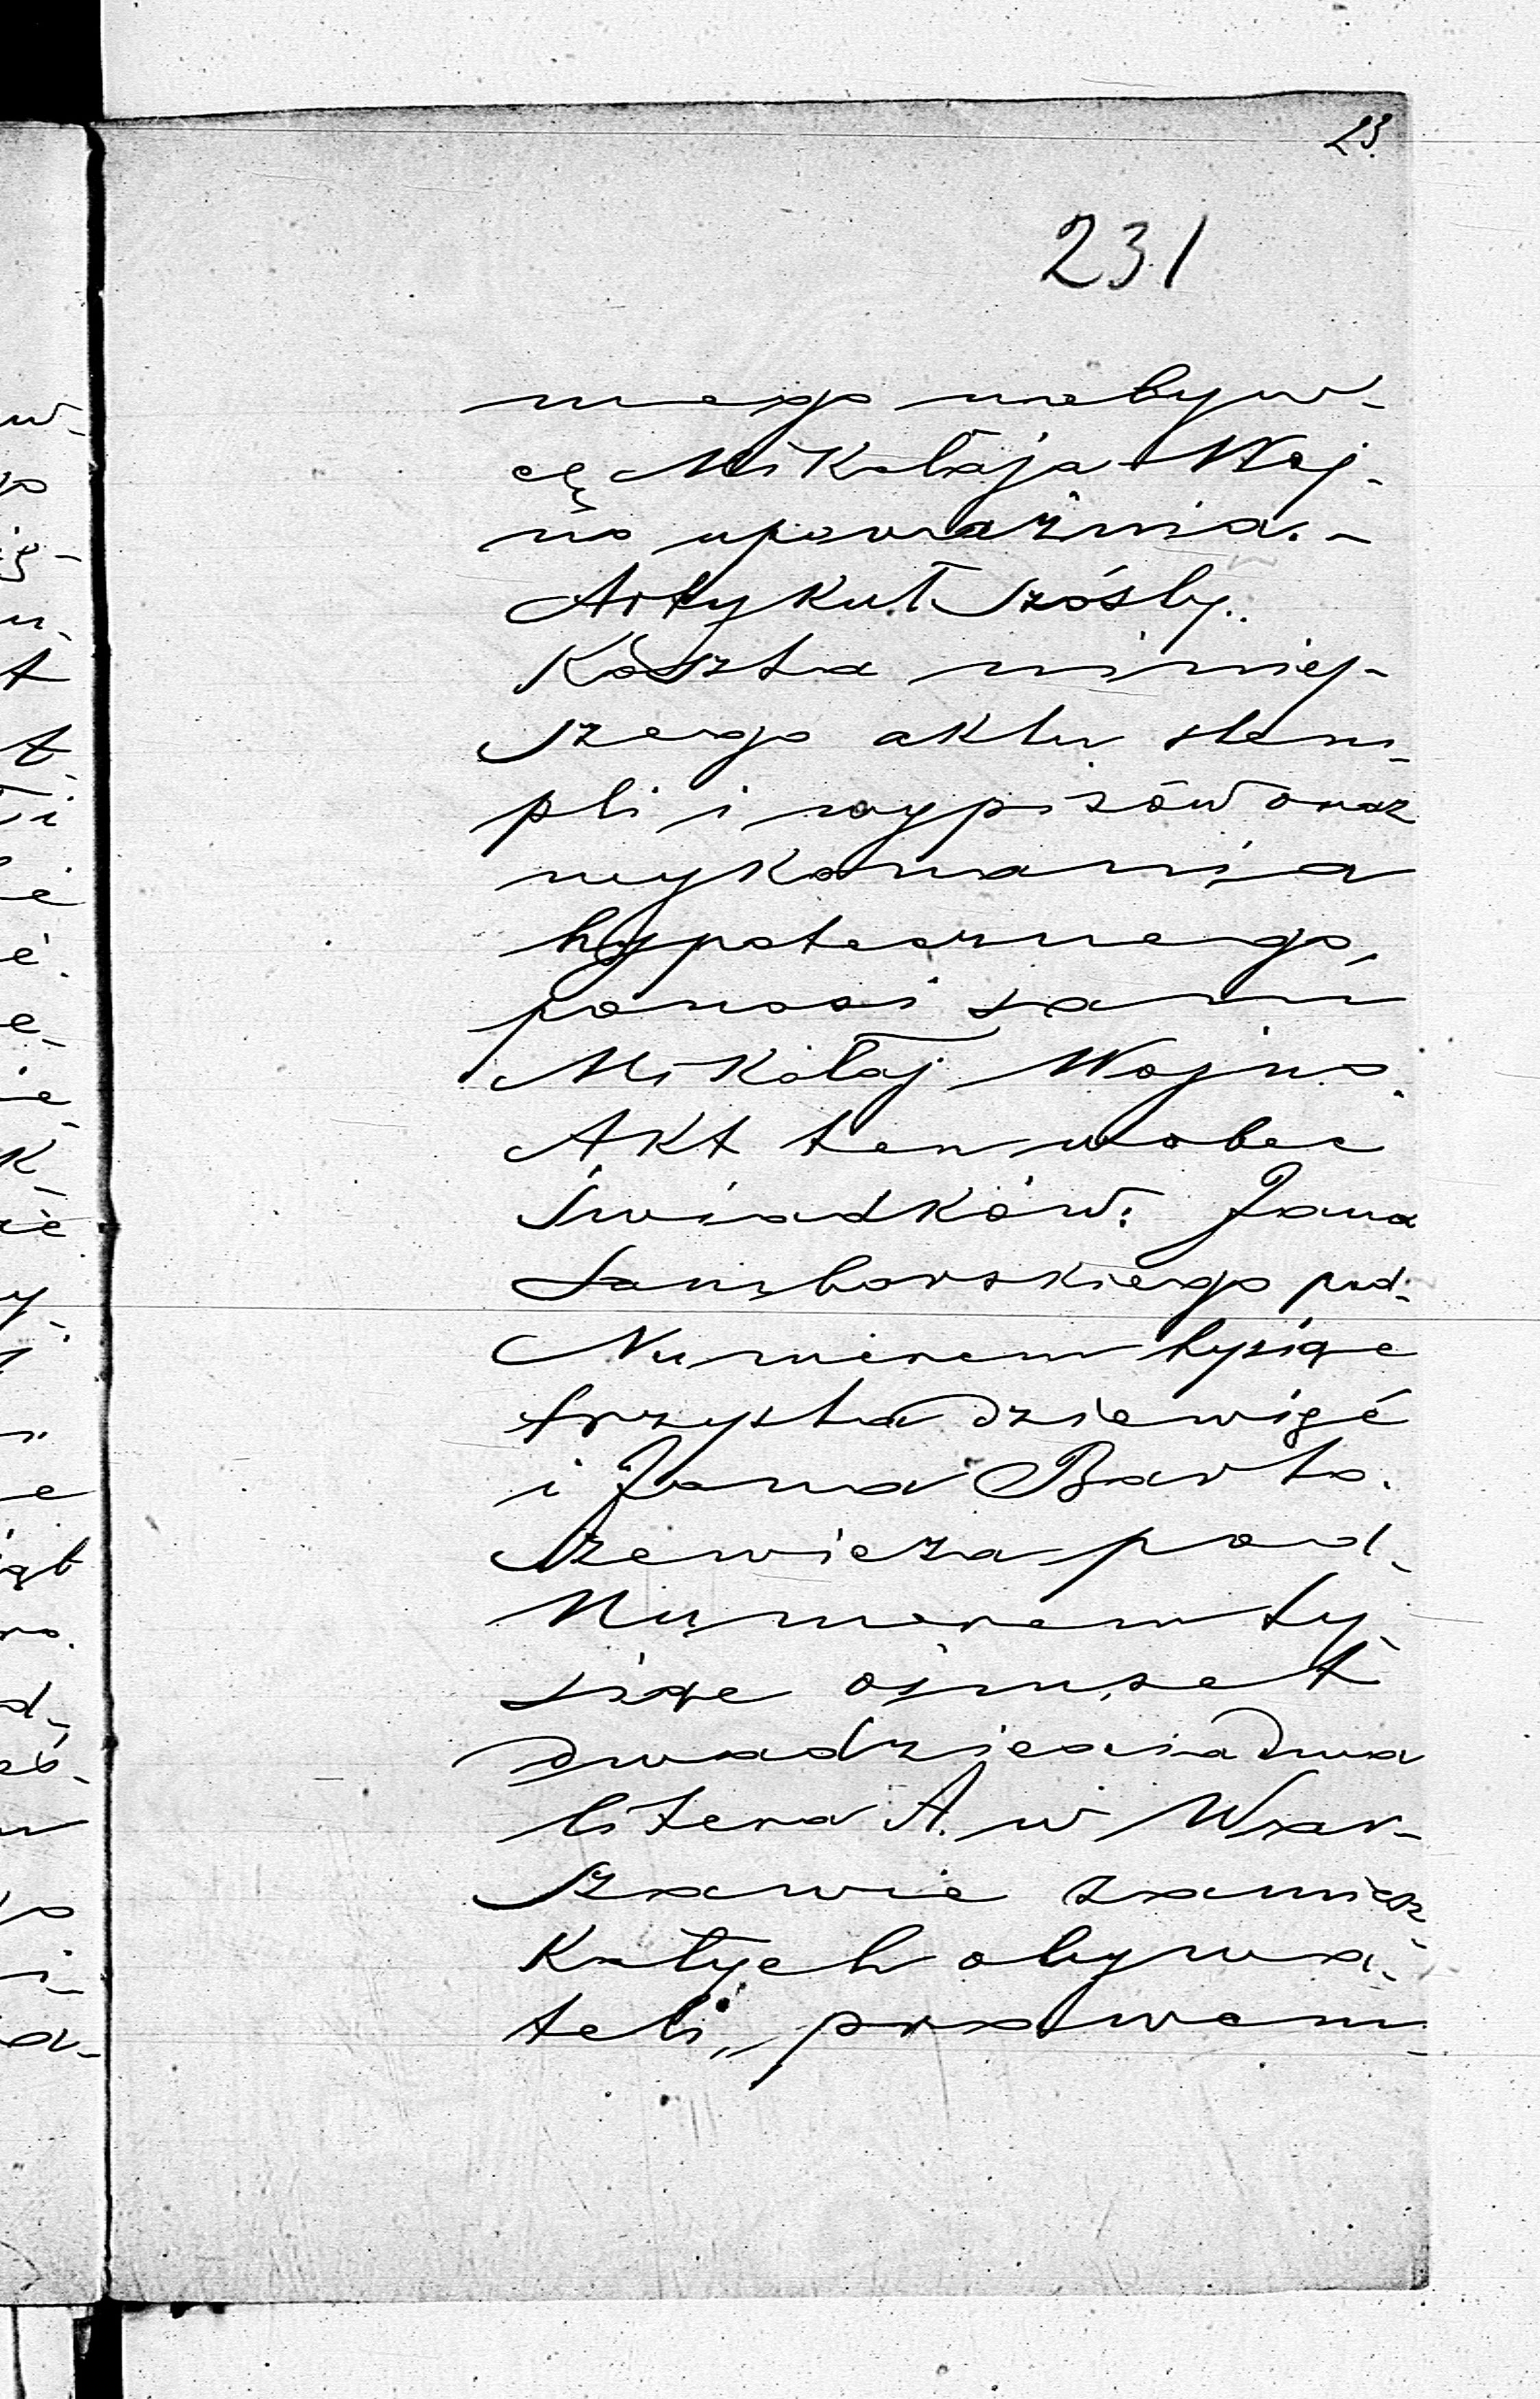 23.
231
mego nabyw-
cę Mikołaja Woj-
no upoważnia.-
Artykuł Szósty.
Koszta niniej-
szego aktu stem-
pli i wypisów oraz
wykonania
hypotecznego,
ponosi sam
Mikołaj Wojno.
Akt ten wobec
Świadków: Jana
Samborskiego pod-
Numerem tysiąc
trzysta dziewięć
i Jana Barto-
szewicza pod-
Numerem ty-
siąc ośmset
dwadzieścia dwa
litera A. w War-
szawie zamiesz-
kałych obywa-
teli, prawem